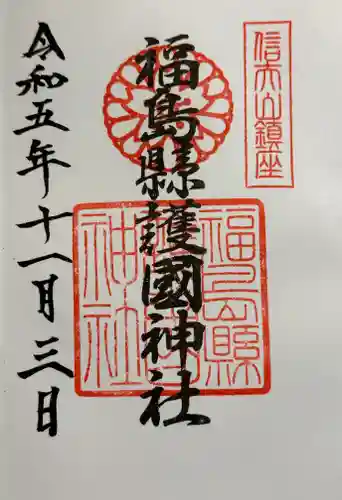 信夫山鎮座
福島縣護國神社
福島縣護國神社
令和五年十一月三日